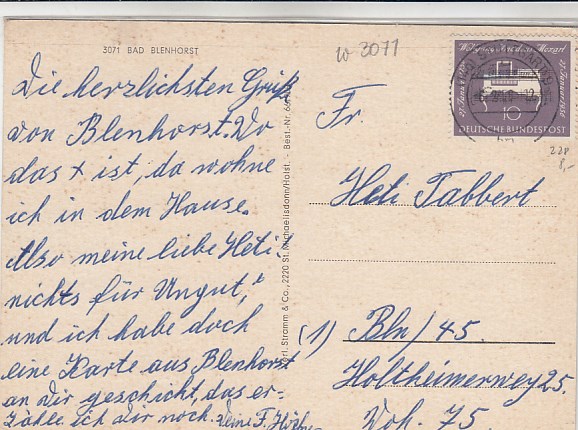 3071 BAD BLENHORST
w 3077
Die herzlichsten Grüß
von Blenhorst. Wo
das x ist, da wohne
ich in dem Hause.
Also meine liebe Heti
nichts für Ungut,
und ich habe doch
eine Karte aus Blenhorst
an Dir geschickt, das er-
zähle ich dir noch. Deine F.
Verl. Stramm & Co., 2220 St. Michaelisdonn/Holst. - Best.-Nr.
Wolfgang Amadeus Mozart
27. Januar 1956
10
DEUTSCHE BUNDESPOST
228
8,-
Fr.
Heti Tabbert
(1) Bln/45.
Holtheimerweg 25.
Woh. 75.